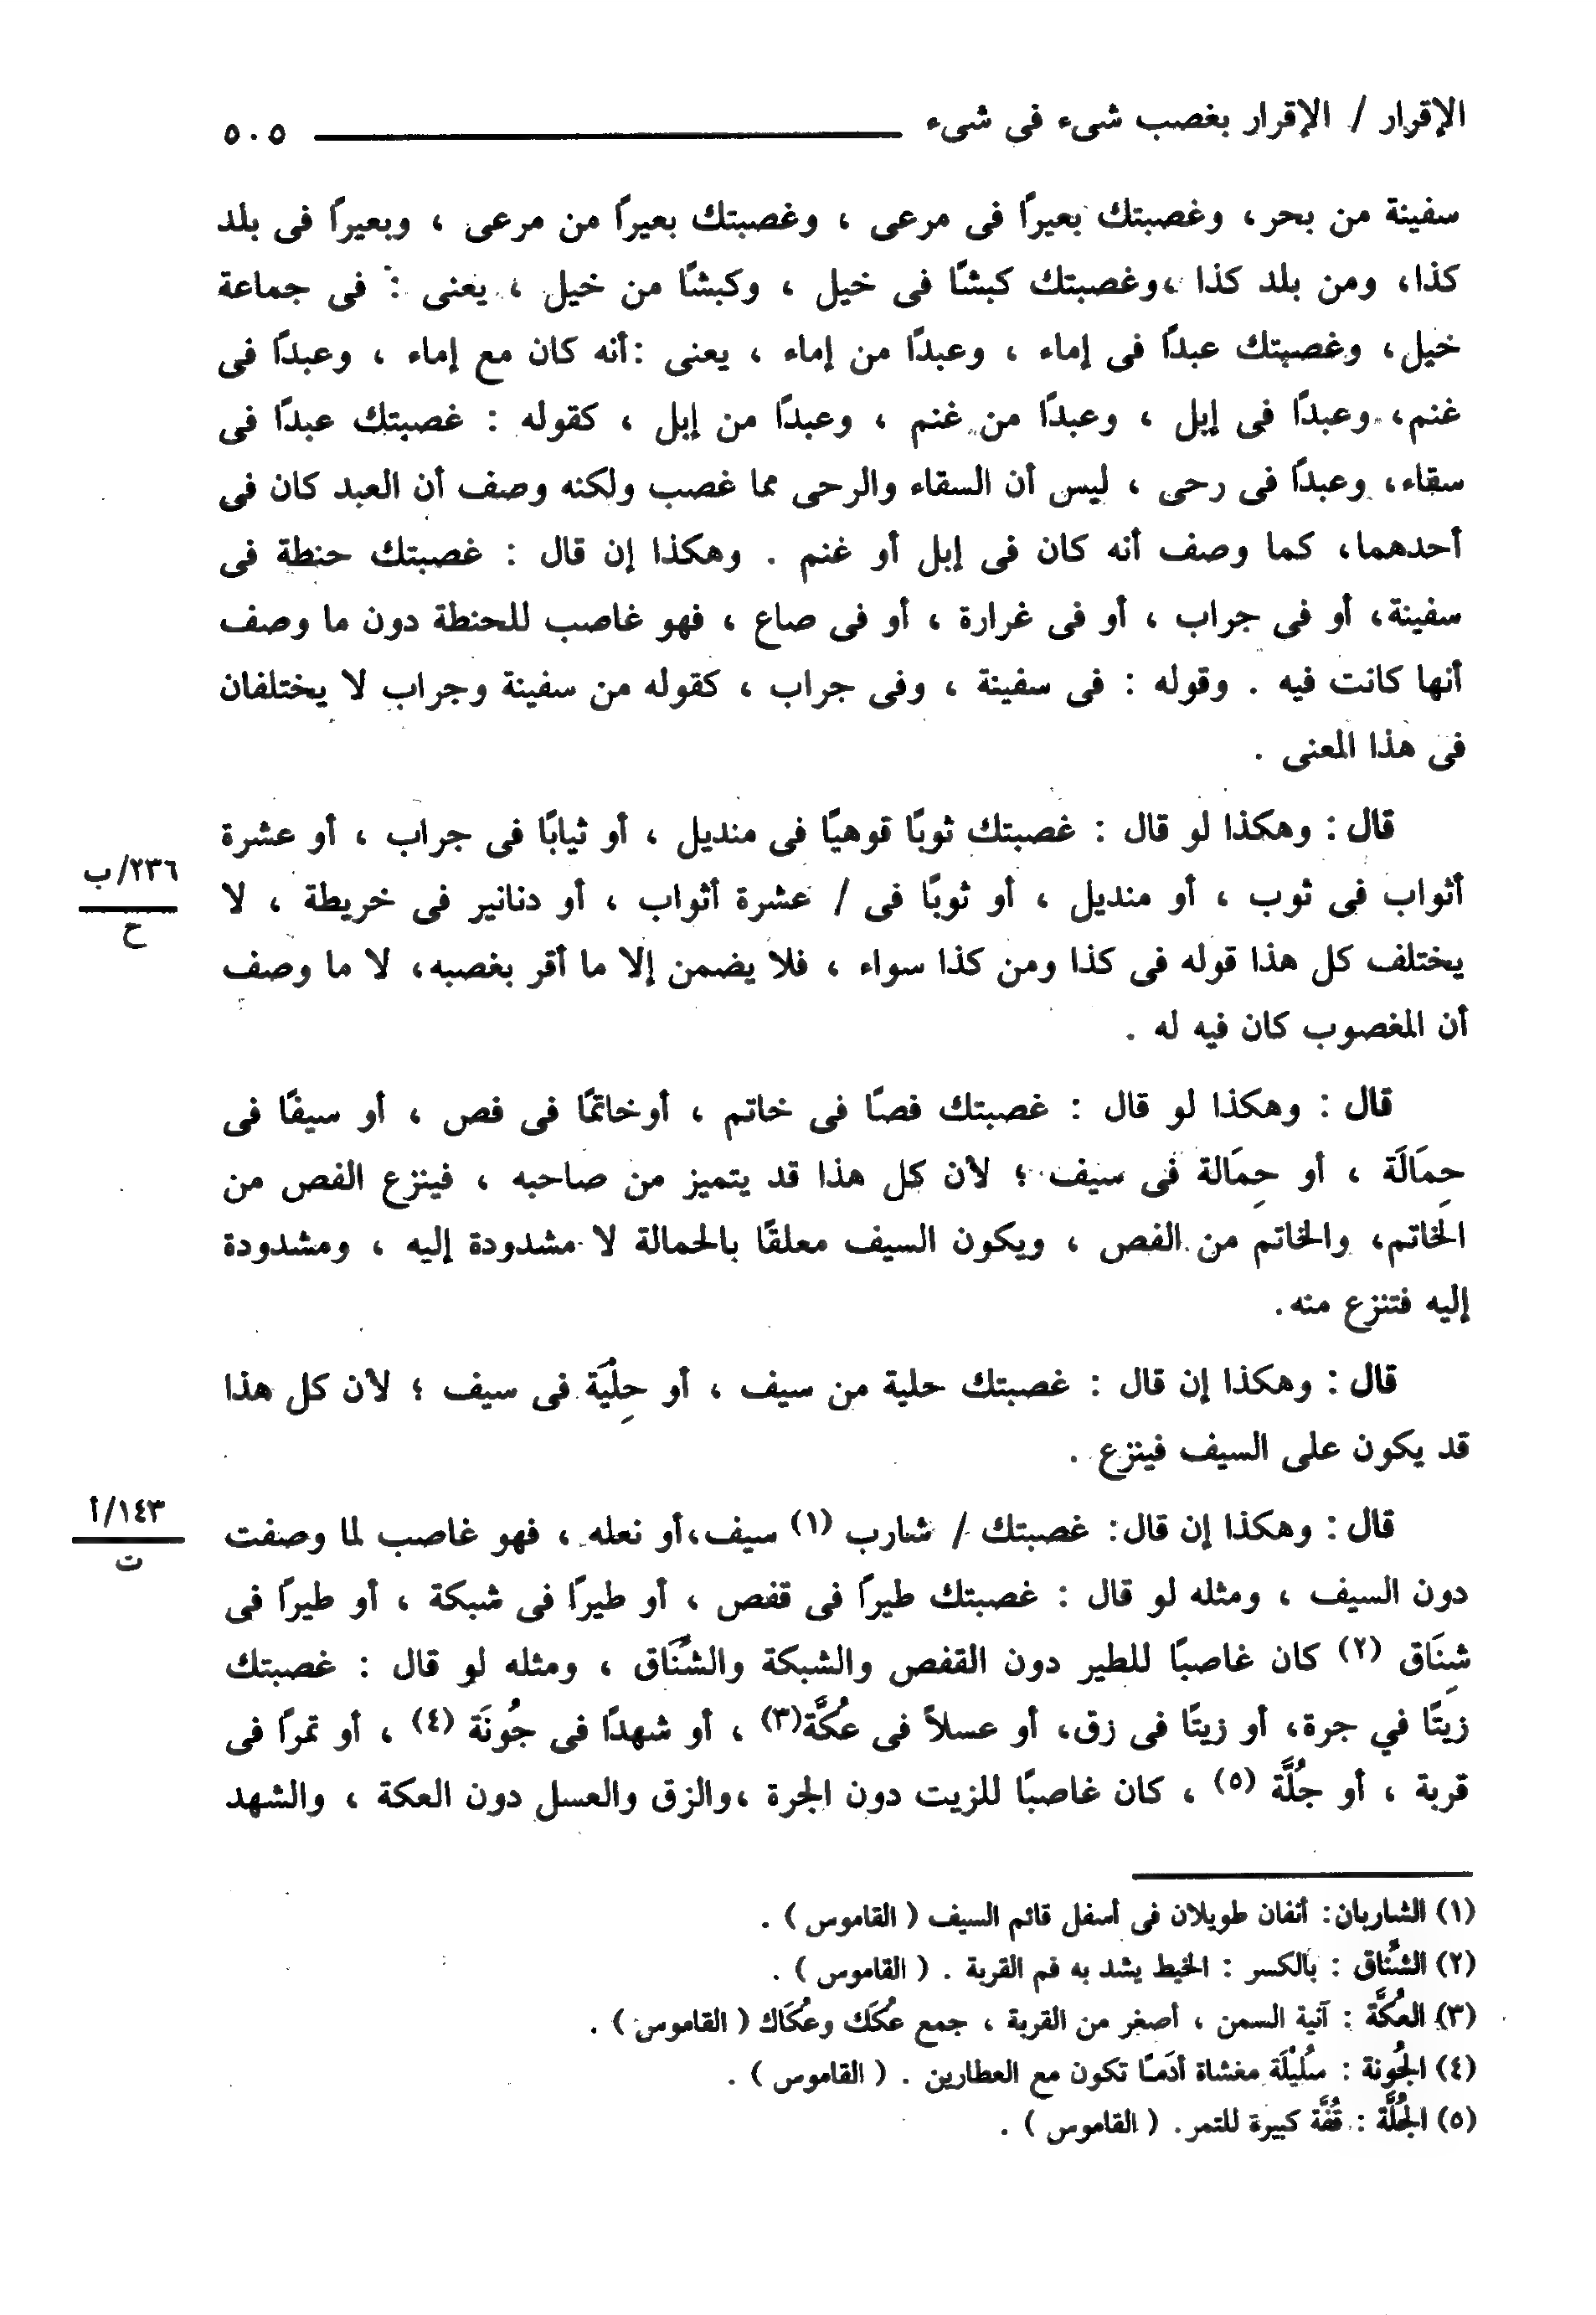 الإقرار / الإقرار بغصب شىء فى شىء ٥٠٥
سفينة من بحر، وغصبتك بعيرًا فى مرعى ، وغصبتك بعيرًا من مرعى ، وبعيرًا فى بلد
كذا، ومن بلد كذا ،وغصبتك كبشًا فى خيل ، وكبشًا من خيل ، يعنى : فى جماعة
خيل، وغصبتك عبدًا فى إماء ، وعبدًا من إماء ، يعنى :أنه كان مع إماء ، وعبدًا فى
غنم، وعبدًا فى إبل ، وعبدًا من غنم ، وعبدًا من إبل ، كقوله : غصبتك عبدًا فى
سقاء، وعبدًا فى رحى ، ليس أن السقاء والرحى مما غصب ولكنه وصف أن العبد كان فى
أحدهما، كما وصف أنه كان فى إبل أو غنم . وهكذا إن قال : غصبتك حنطة فى
سفينة، أو فى جراب ، أو فى غرارة ، أو فى صاع ، فهو غاصب للحنطة دون ما وصف
أنها كانت فيه . وقوله : فى سفينة ، وفى جراب ، كقوله من سفينة وجراب لا يختلفان
فى هذا المعنى .
قال : وهكذا لو قال : غصبتك ثوبًا قوهيًا فى منديل ، أو ثيابًا فى جراب ، أو عشرة
٢٣٦/ب
أثواب فى ثوب ، أو منديل ، أو ثوبًا فى / عشرة أثواب ، أو دنانير فى خريطة ، لا
ح
يختلف كل هذا قوله فى كذا ومن كذا سواء ، فلا يضمن إلا ما أقر بغصبه، لا ما وصف
أن المغصوب كان فيه له .
قال : وهكذا لو قال : غصبتك فصًا فى خاتم ، أوخاتمًا فى فص ، أو سيفًا فى
حِمَالَة ، أو حِمَالة فى سيف ؛ لأن كل هذا قد يتميز من صاحبه ، فينزع الفص من
الخاتم، والخاتم من الفص ، ويكون السيف معلقًا بالحمالة لا مشدودة إليه ، ومشدودة
إليه فتنزع منه.
قال : وهكذا إن قال : غصبتك حلية من سيف ، أو حِلْيَة فى سيف ؛ لأن كل هذا
قد يكون على السيف فينزع .
١٤٣/أ
قال : وهكذا إن قال: غصبتك / شارب (١) سيف،أو نعله ، فهو غاصب لما وصفت
ت
دون السيف ، ومثله لو قال : غصبتك طيرًا فى قفص ، أو طيرًا فى شبكة ، أو طيرًا فى
شِنَاق (٢) كان غاصبًا للطير دون القفص والشبكة والشِّنَاق ، ومثله لو قال : غصبتك
زيتًا في جرة، أو زيتًا فى زق، أو عسلاً فى عكَّة(٣) ، أو شهدًا فى جُونَة (٤) ، أو تمرًا فى
قربة ، أو جُلَّة (٥) ، كان غاصبًا للزيت دون الجرة ،والزق والعسل دون العكة ، والشهد
(١) الشاربان: أنفان طويلان فى أسفل قائم السيف ( القاموس ) .
(٢) الشِّنَاق : بالكسر : الخيط يشد به فم القربة . ( القاموس ) .
(٣) العُكَّة : آنية السمن ، أصغر من القربة ، جمع عُكَك وعُكَاك ( القاموس ) .
(٤) الجُونة : سُلَيْلَة مغشاة أدَمًا تكون مع العطارين . ( القاموس ) .
(٥) الجُلَّة : قُفَّة كبيرة للتمر. ( القاموس ) .